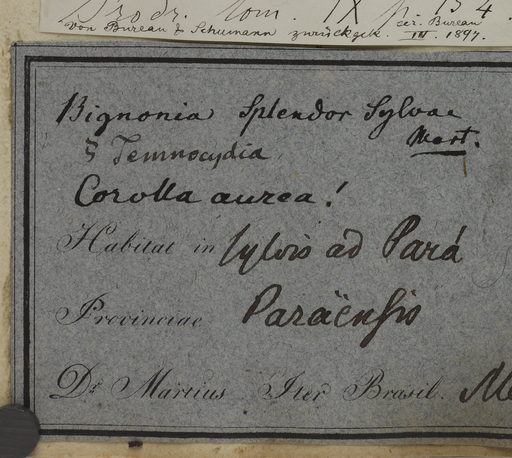 Prodr. tom. IX p. 154.
von Bureau & Schumann zurückgek. cir. Bureau
III. 1897.
Bignonia Splendor Sylvae
Mart.
§ Temnocydia
Corolla aurea!
Habitat in sylvis ad Pará
Provinciae Paraënsis
Dr. Martius Iter Brasil.